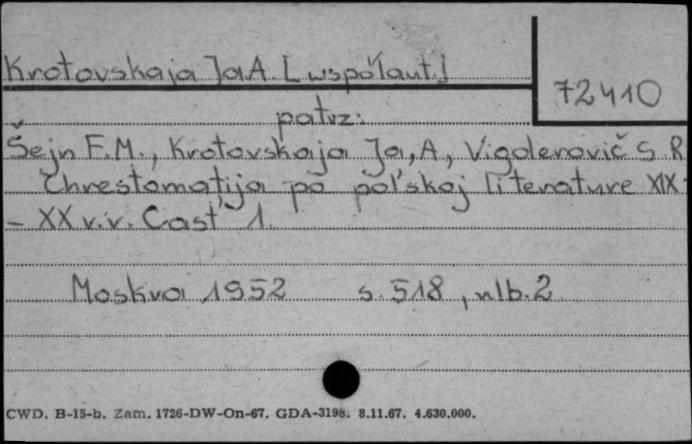 Krotovskaja Ja.A. [współaut.]
72410
patrz:
Šejn F.M., Krotovskaja Ja,A, Vigolerovič S R
Chrestomatija po pol'skoj literature XIX-
- XX v.v. Čast' 1.
Moskva 1952 s. 518, nlb. 2
CWD. B-15-b. Zam. 1726-DW-On-67. GDA-3198. 8.11.67. 4.630.000.